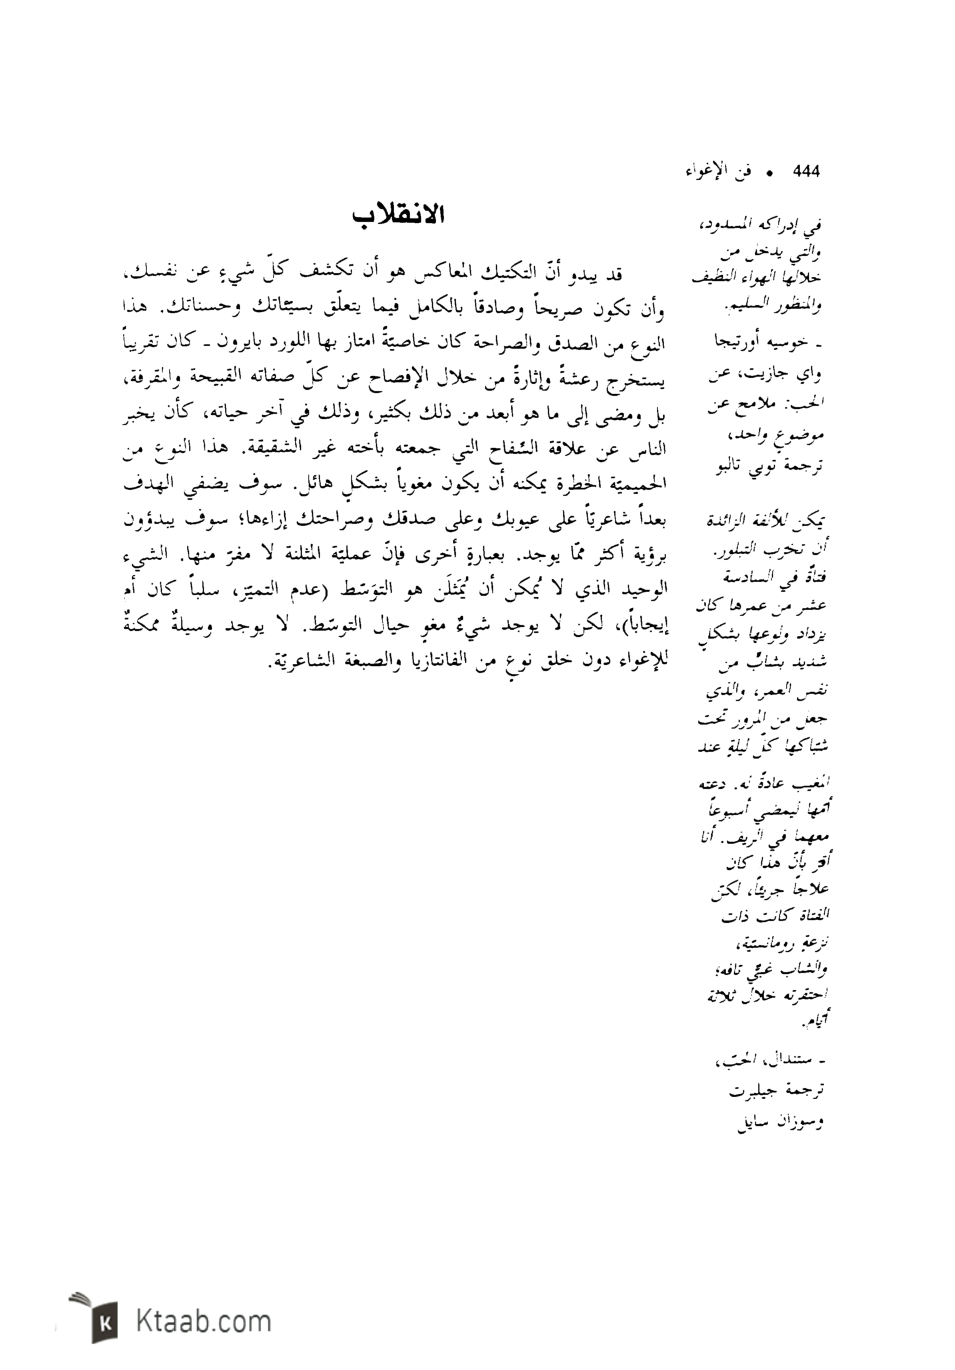 444 • فن الإغواء
في إدراكه المسدود،
والتي يدخل من
خلالها الهواء النظيف
والمنظور السليم.
ـ خوسيه أورتيجا
واي جازيت، عن
الحب: ملامح عن
موضوعٍ واحد،
ترجمة توبي تالبو
يمكن للألفة الزائدة
أن تخرّب التبلور.
فتاةٌ في السادسة
عشر من عمرها كان
يزداد ولوعها بشكلٍ
شديد بشابٍّ من
نفس العمر، والذي
جعل من المرور تحت
شبّاكها كلّ ليلةٍ عند
المغيب عادةً له. دعته
أمّها ليمضي أسبوعاً
معهما في الريف. أنا
أقرّ بأنّ هذا كان
علاجاً جريئاً، لكنّ
الفتاة كانت ذات
نزعةٍ رومانسيّة،
والشاب غبيّ تافه؛
احتقرته خلال ثلاثة
أيّام.
ـ ستندال، الحبّ،
ترجمة جيلبرت
وسوزان سايل
الانقلاب
قد يبدو أنّ التكتيك المعاكس هو أن تكشف كلّ شيءٍ عن نفسك،
وأن تكون صريحاً وصادقاً بالكامل فيما يتعلّق بسيّئاتك وحسناتك. هذا
النوع من الصدق والصراحة كان خاصيّةً امتاز بها اللورد بايرون ـ كان تقريباً
يستخرج رعشةً وإثارةً من خلال الإفصاح عن كلّ صفاته القبيحة والمقرفة،
بل ومضى إلى ما هو أبعد من ذلك بكثير، وذلك في آخر حياته، كأن يخبر
الناس عن علاقة السِّفاح التي جمعته بأخته غير الشقيقة. هذا النوع من
الحميميّة الخطرة يمكنه أن يكون مغوياً بشكلٍ هائل. سوف يضفي الهدف
بعداً شاعريّاً على عيوبك وعلى صدقك وصراحتك إزاءها؛ سوف يبدؤون
برؤية أكثر ممّا يوجد. بعبارةٍ أخرى فإنّ عمليّة المثلنة لا مفرّ منها. الشيء
الوحيد الذي لا يُمكن أن يُمَثلَن هو التوَسّط (عدم التميّز، سلباً كان أم
إيجاباً)، لكن لا يوجد شيءٌ مغوٍ حيال التوسّط. لا يوجد وسيلةٌ ممكنةٌ
للإغواء دون خلق نوعٍ من الفانتازيا والصبغة الشاعريّة.
K Ktaab.com